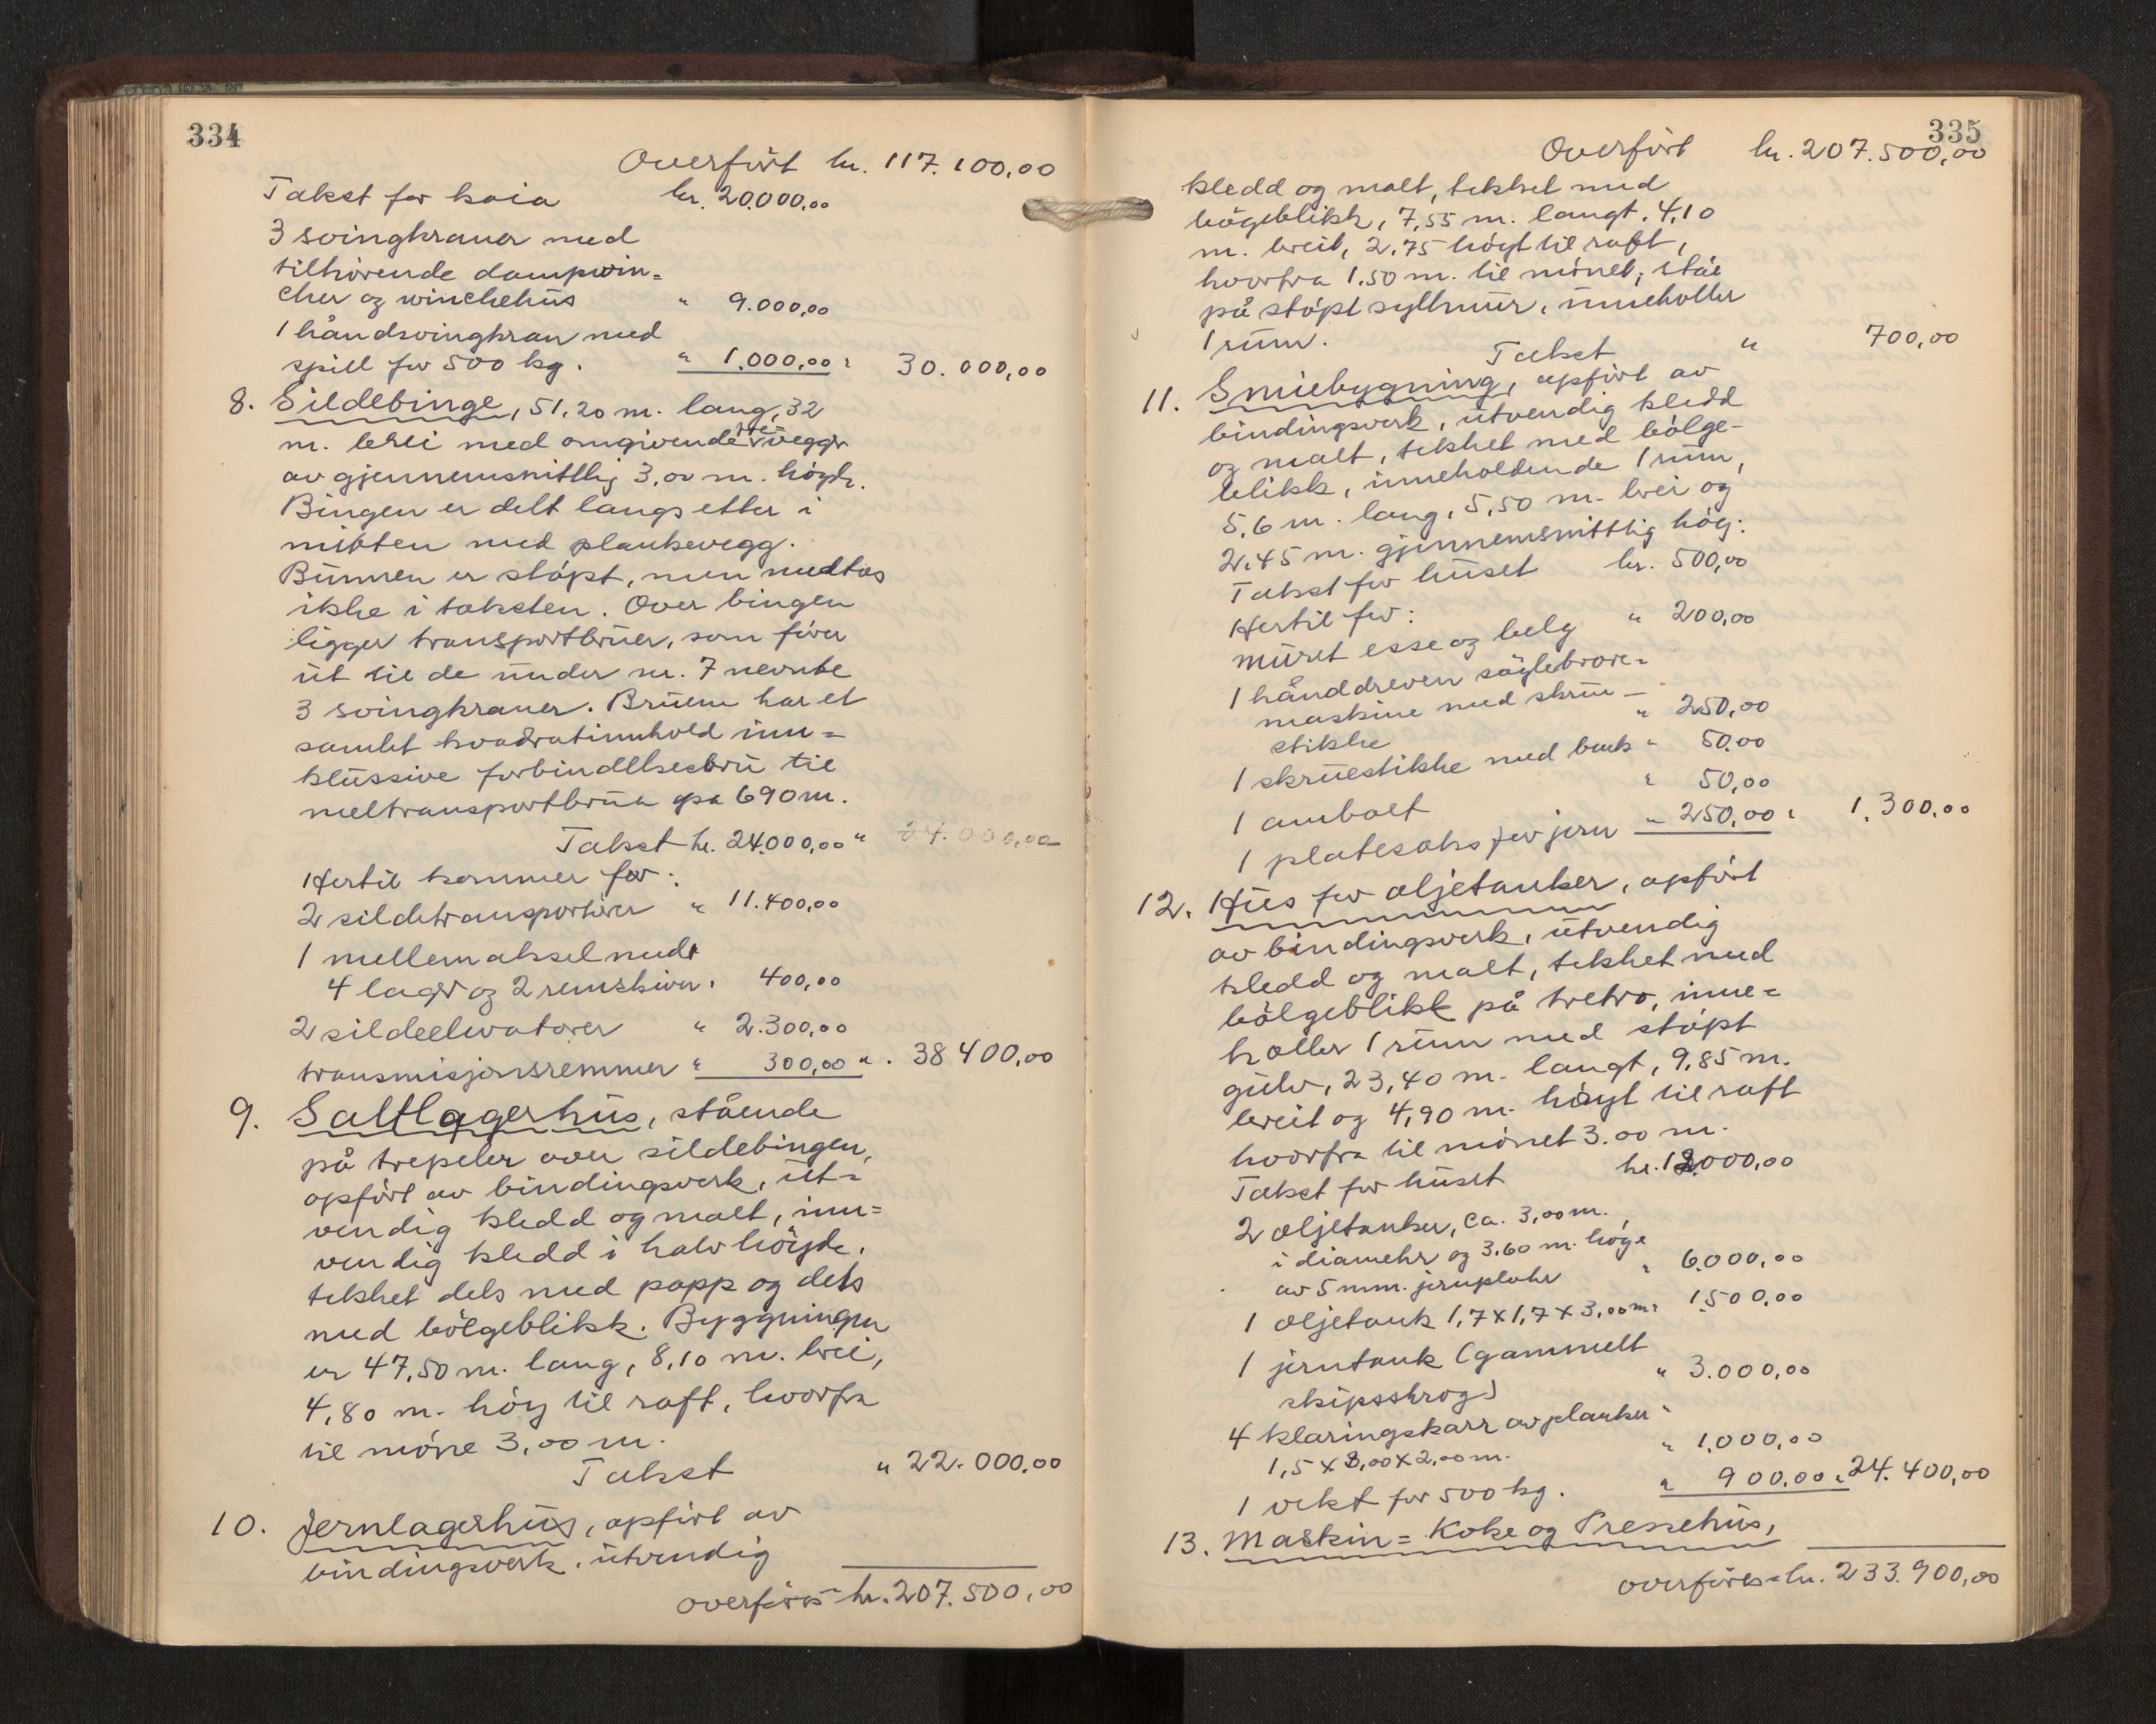 334
Overført kr. 117.100,00
Takst for kaia kr. 20.000,00
3 svingkraner med
tilhørende dampwin=
cher og winchehus " 9.000,00
1 håndsvingkran med
spill for 500 kg. " 1.000,00 " 30.000,00
8. Sildebinge, 51,20 m. lang, 32
m. brei med omgivende tre=vegger
av gjennemsnittlig 3,00 m. høyde.
Bingen er delt langsetter i
midten med plankevegg.
Bunnen er støpt, men medtas
ikke i taksten. Over bingen
ligger transportbruer, som fører
ut til de under nr. 7 nevnte
3 svingkraner. Bruene har et
samlet kvadratinnhold inn=
klussive forbindelsesbru til
meltransportbrua på 690 m.
Takst kr. 24.000,00 " 24.000,00
Hertil kommer for:
2 sildetransportører " 11.400,00
1 mellemaksel med
4 lager og 2 remskiver " 400,00
2 sildeelevatorer " 2.300,00
transmisjonsremmer " 300,00 " 38400,00
9. Saltlagerhus, stående
på trepeler over sildebingen,
opført av bindingsverk, ut=
vendig kledd og malt, inn=
vendig kledd i halv høyde,
tekket dels med papp og dels
med bølgeblikk. Byggningen
er 47,50 m. lang, 8,10 m. brei,
4,80 m. høy til raft, hvorfra
til møne 3,00 m.
Takst " 22.000,00
10. Jernlagerhus, opført av
bindingsverk, utvendig
overføres kr. 207.500,00
335
Overført kr. 207.500,00
kledd og malt, tekket med
bøgeblikk, 7,55 m. langt, 4,10
m. breit, 2,75 høyt til raft,
hvorfra 1.50 m. til mønet, står
på støpt syllmur, inneholler
1 rum.
Takst " 700,00
11. Smiebygning, opført av
bindingsverk, utvendig kledd
og malt, tekket med bølge-
blikk, inneholdende 1 rum,
5,6 m. lang, 5,50 m. brei og
2,45 m. gjennemsnittlig høy:
Takst for huset kr. 500,00
Hertil for:
muret esse og belg " 200,00
1 hånddreven søylebore=
maskine med skru-
stikke " 250,00
1 skruestikke med benk " 50,00
1 ambolt " 50,00
1 platesaks for jern " 250,00 " 1.300,00
12. Hus for oljetanker, opført
av bindingsverk, utvendig
kledd og malt, tekket med
bølgeblikk på tretro, inne=
holler 1 rum med støpt
gulv, 23,40 m. langt, 9,85 m.
breit og 4,90 m. høyt til raft
hvorfra til mønet 3.00 m.
Takst for huset kr. 12000,00
2 oljetanker, ca. 3,00 m.
i diameter og 3.60 m. høye
av 5 mm. jernplater " 6.000,00
1 oljetank 1,7 x 1,7 x 3,00 m " 1.500,00
1 jerntank (gammelt
skipsskrog) " 3.000,00
4 klaringskarr av planker
1,5 x 3,00 x 2,00 m. " 1.000,00
1 vekt for 500 kg. " 900,00 " 24.400,00
13. Maskin= Koke og Pressehus,
overføres kr. 233.900,00